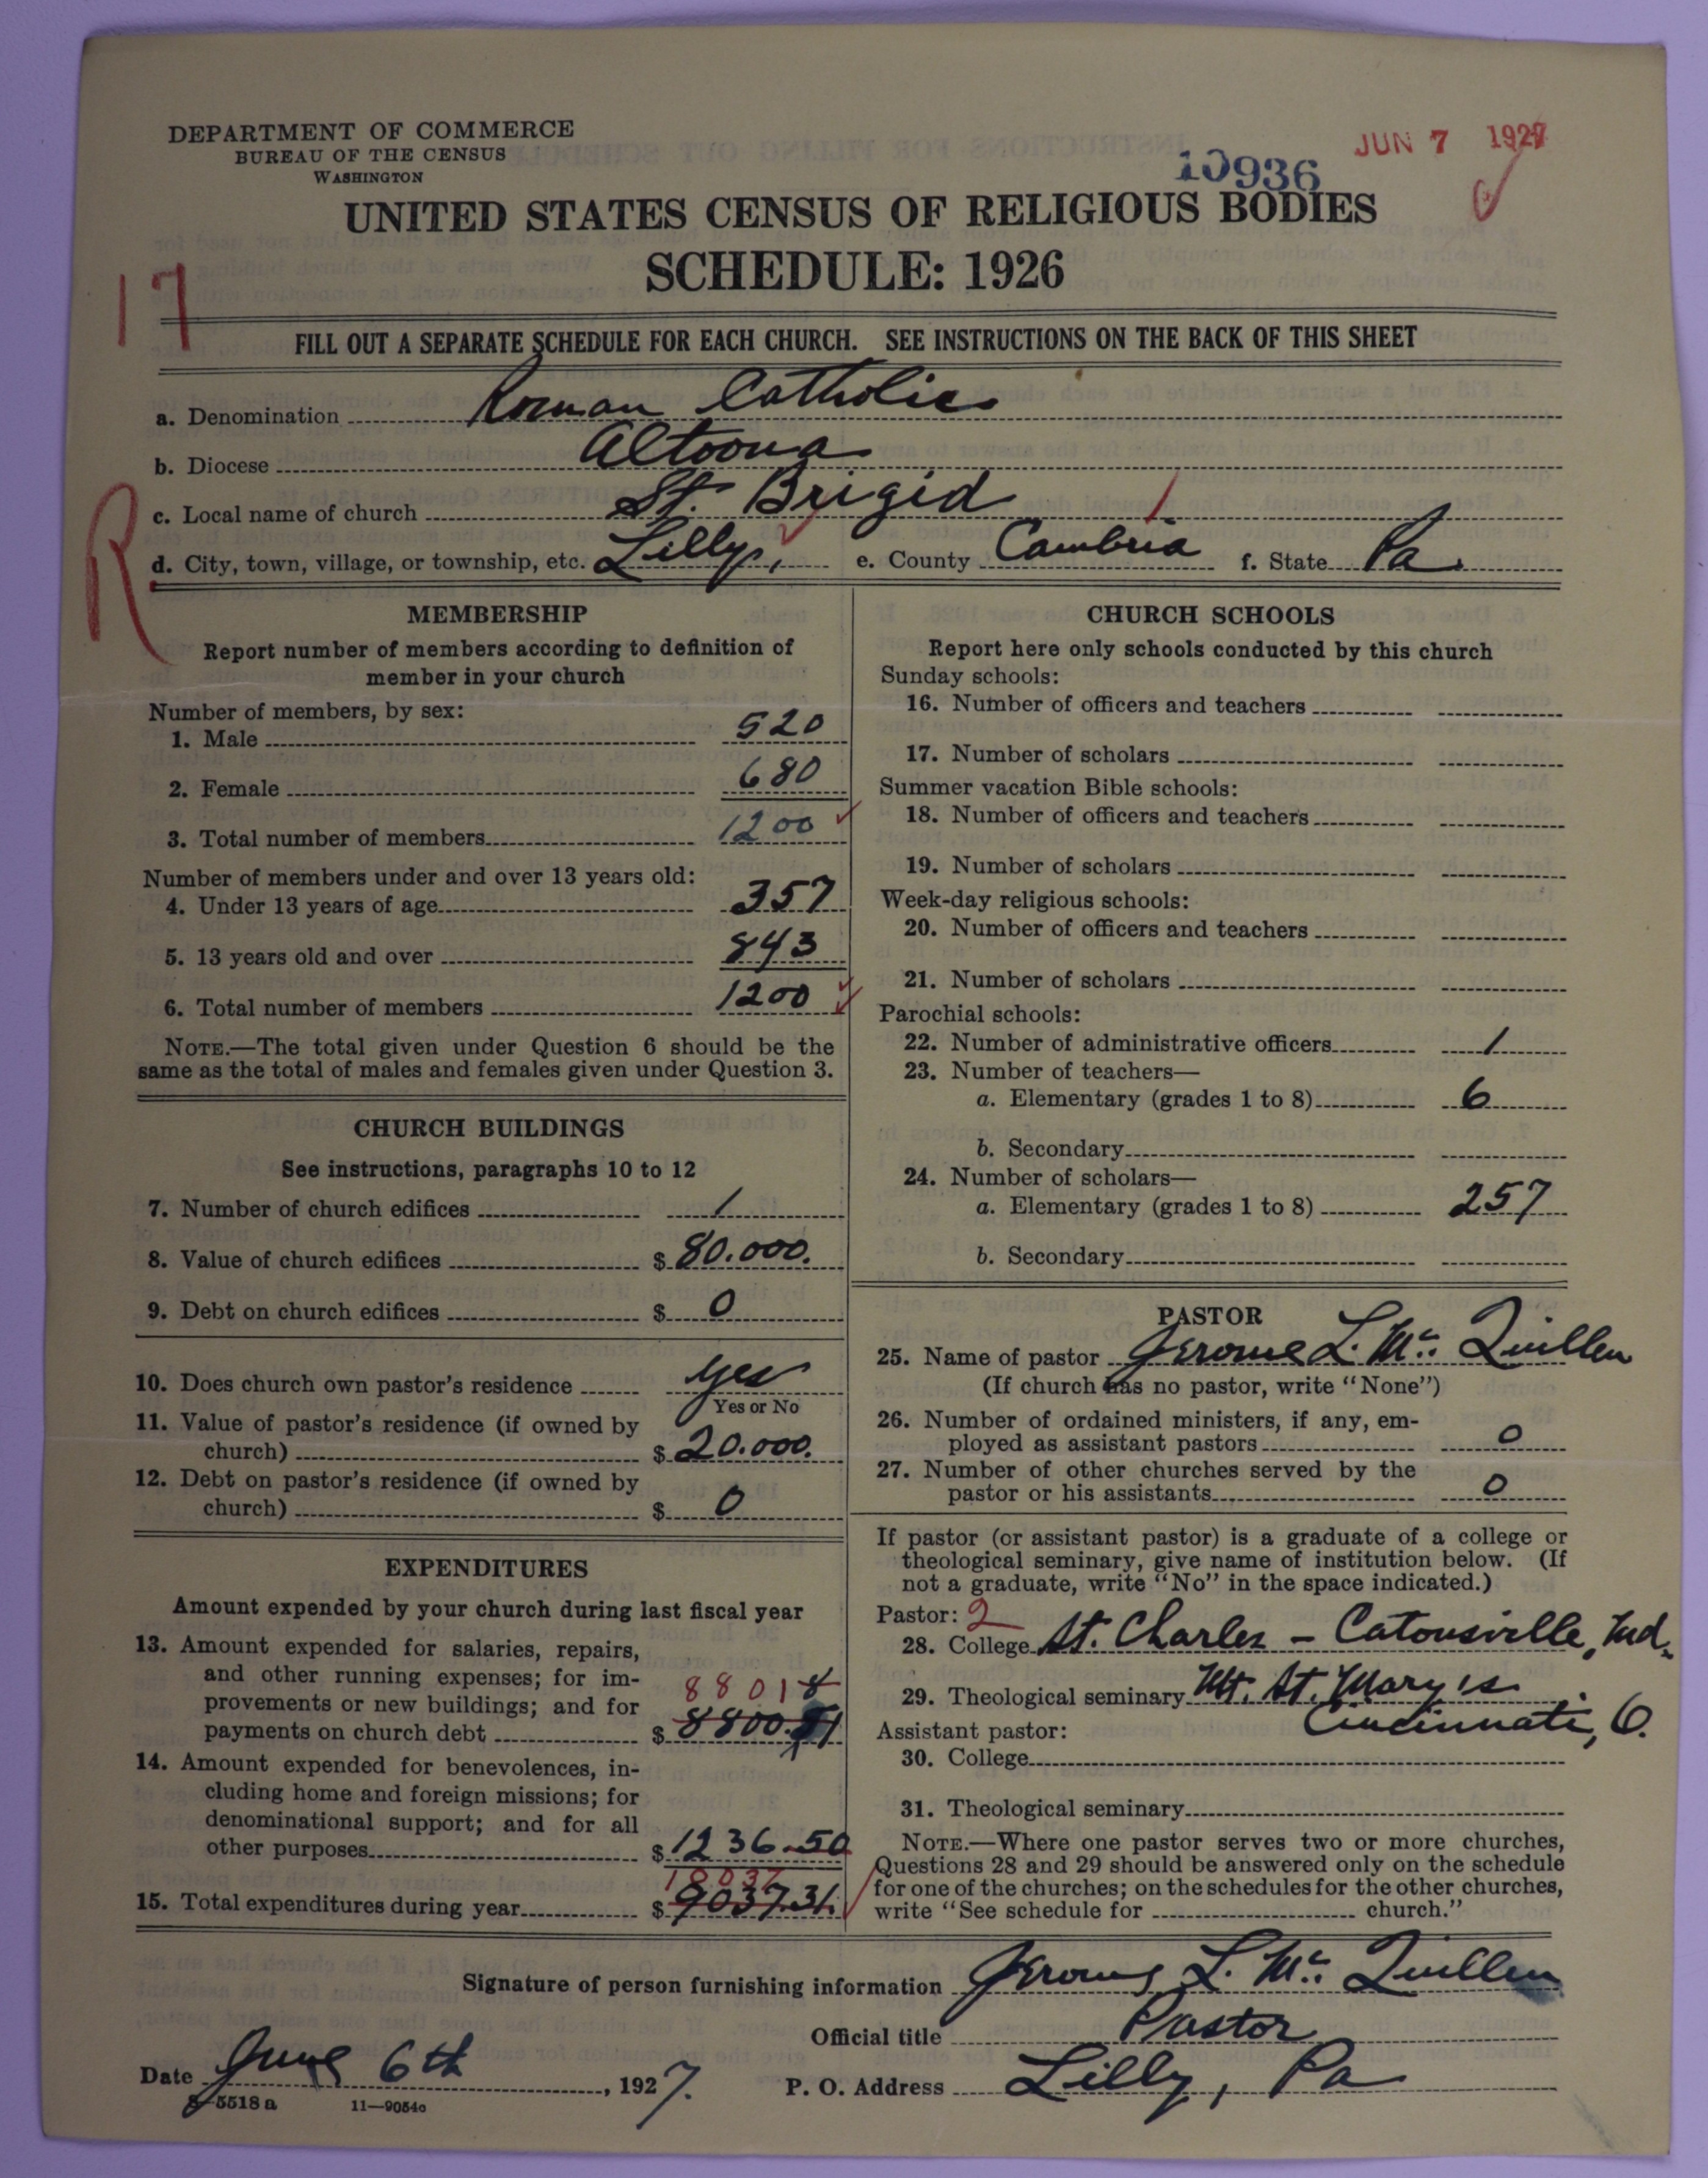 DEPARTMENT OF COMMERCE
BUREAU OF THE CENSUS
WASHINGTON
JUN 7 1927
10936
UNITED STATES CENSUS OF RELIGIOUS BODIES
SCHEDULE: 1926
17
FILL OUT A SEPARATE SCHEDULE FOR EACH CHURCH. SEE INSTRUCTIONS ON THE BACK OF THIS SHEET
a. Denomination Roman Catholic
b. Diocese Altoona
c. Local name of church St. Brigid
d. City, town, village, or township, etc. Lilly, e. County Cambria f. State Pa.
R
MEMBERSHIP
Report number of members according to definition of
member in your church
Number of members, by sex:
1. Male 520
2. Female 680
3. Total number of members 1200
Number of members under and over 13 years old:
4. Under 13 years of age 357
5. 13 years old and over 843
6. Total number of members 1200
NOTE.—The total given under Question 6 should be the
same as the total of males and females given under Question 3.
CHURCH BUILDINGS
See instructions, paragraphs 10 to 12
7. Number of church edifices 1
8. Value of church edifices $ 80.000.
9. Debt on church edifices $ 0
10. Does church own pastor's residence yes
Yes or No
11. Value of pastor's residence (if owned by
church) $ 20.000.
12. Debt on pastor's residence (if owned by
church) $ 0
EXPENDITURES
Amount expended by your church during last fiscal year
13. Amount expended for salaries, repairs,
and other running expenses; for im-
provements or new buildings; and for 8801
payments on church debt $ 8800.81
14. Amount expended for benevolences, in-
cluding home and foreign missions; for
denominational support; and for all
other purposes $ 1236.50
10037
15. Total expenditures during year $ 9037.31
CHURCH SCHOOLS
Report here only schools conducted by this church
Sunday schools:
16. Number of officers and teachers
17. Number of scholars
Summer vacation Bible schools:
18. Number of officers and teachers
19. Number of scholars
Week-day religious schools:
20. Number of officers and teachers
21. Number of scholars
Parochial schools:
22. Number of administrative officers 1
23. Number of teachers—
a. Elementary (grades 1 to 8) 6
b. Secondary
24. Number of scholars—
a. Elementary (grades 1 to 8) 257
b. Secondary
PASTOR
25. Name of pastor Jerome L. Mc. Quillen
(If church has no pastor, write "None")
26. Number of ordained ministers, if any, em-
ployed as assistant pastors 0
27. Number of other churches served by the
pastor or his assistants 0
If pastor (or assistant pastor) is a graduate of a college or
theological seminary, give name of institution below. (If
not a graduate, write "No" in the space indicated.)
Pastor: 2
28. College St. Charles – Catonsville, Md.
29. Theological seminary Mt. St. Mary's
Assistant pastor: Cincinnati, O.
30. College
31. Theological seminary
NOTE.—Where one pastor serves two or more churches,
Questions 28 and 29 should be answered only on the schedule
for one of the churches; on the schedules for the other churches,
write "See schedule for church."
Signature of person furnishing information Jerome L. Mc. Quillen
Official title Pastor
Date June 6th, 1927. P. O. Address Lilly, Pa
8-5518 a 11—9054c